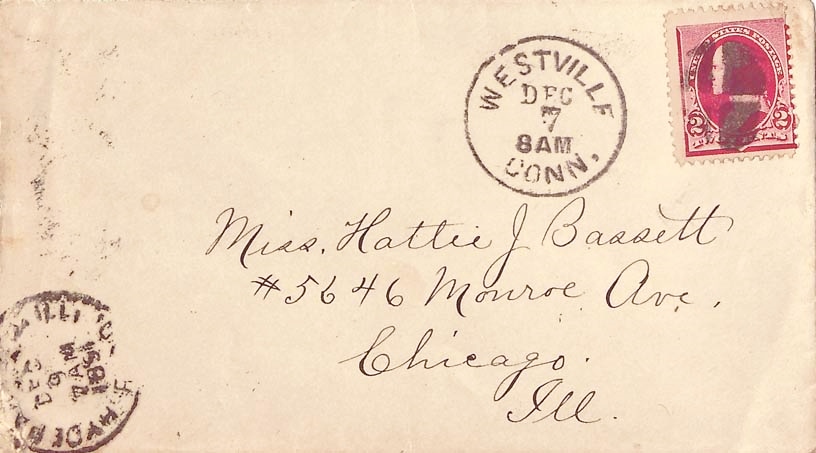 WESTVILLE
DEC
7
8AM
CONN.
UNITED STATES POSTAGE
2 2
Miss. Hattie J Bassett
#5646 Monroe Ave.
Chicago.
Ill.
HYDE
ILL.
DEC
9
7AM